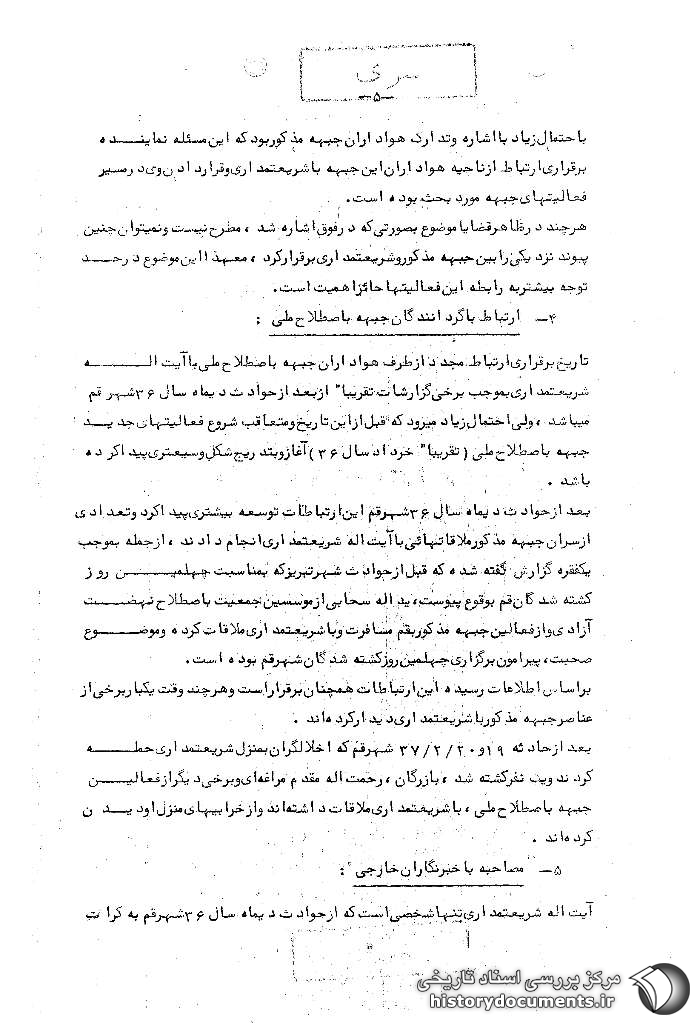 سری
-۵-
با احتمال زیاد با اشاره وتدارک هواداران جبهه مذکور بود که این مسئله نماینده
برقراری ارتباط از ناحیه هواداران این جبهه با شریعتمداری و قرار دادن وی در مسیر
فعالیتهای جبهه مورد بحث بوده است.
هرچند در ظاهر قضایا موضوع بصورتی که در فوق اشاره شد ، مطرح نیست و نمیتوان چنین
پیوند نزدیکی را بین جبهه مذکور و شریعتمداری برقرار کرد ، معهذا این موضوع در حد
توجه بیشتر به رابطه این فعالیتها حائز اهمیت است.
۴- ارتباط با گردانندگان جبهه باصطلاح ملی :
تاریخ برقراری ارتباط مجدد از طرف هواداران جبهه باصطلاح ملی با آیت اله
شریعتمداری بموجب برخی گزارشات تقریبا" از بعد از حوادث دیماه سال ۳۶ شهر قم
میباشد ، ولی احتمال زیاد میرود که قبل از این تاریخ و متعاقب شروع فعالیتهای جدید
جبهه باصطلاح ملی ( تقریبا" خرداد سال ۳۶ ) آغاز و بتدریج شکل وسیعتری پیدا کرده
باشد .
بعد از حوادث دیماه سال ۳۶ شهر قم این ارتباطات توسعه بیشتری پیدا کرد و تعدادی
از سران جبهه مذکور ملاقاتهائی با آیت اله شریعتمداری انجام دادند ، از جمله بموجب
یکفقره گزارش گفته شده که قبل از حوادث شهر تبریز که بمناسبت چهلمین روز
کشته شدگان قم بوقوع پیوست، یداله سحابی از موسسین جمعیت باصطلاح نهضت
آزادی و از فعالین جبهه مذکور بقم مسافرت و با شریعتمداری ملاقات کرده و موضوع
صحبت، پیرامون برگزاری چهلمین روز کشته شدگان شهر قم بوده است.
براساس اطلاعات رسیده این ارتباطات همچنان برقرار است و هر چند وقت یکبار برخی از
عناصر جبهه مذکور با شریعتمداری دیدار کرده‌اند .
بعد از حادثه ۱۹ و ۳۷/۲/۲۰ شهر قم که اخلالگران بمنزل شریعتمداری حمله
کردند ویک نفر کشته شد ، بازرگان ، رحمت اله مقدم مراغه‌ای و برخی دیگر از فعالین
جبهه باصطلاح ملی ، با شریعتمداری ملاقات داشته‌اند و از خرابیهای منزل او دیدن
کرده‌اند .
۵- "مصاحبه با خبرنگاران خارجی" :
آیت اله شریعتمداری تنها شخصی است که از حوادث دیماه سال ۳۶ شهر قم به کرات
مرکز بررسی اسناد تاریخی
historydocuments.ir